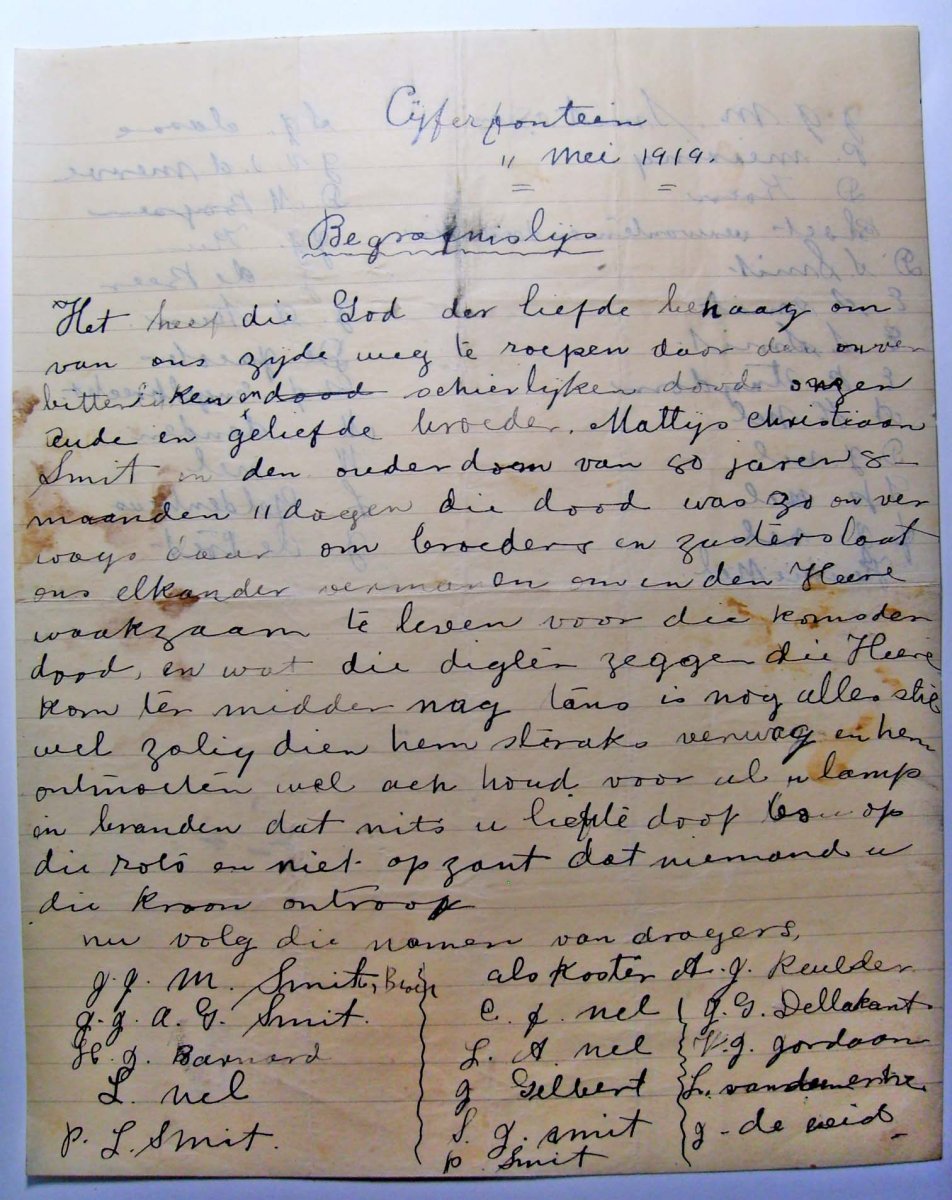 Cÿferfontein
11 Mei 1919.
Begrafnislijs
Het heef die God der liefde behaag om
van ons zyde weg te roepen daar den onver
bitterliken en dood schierlijken dood onzen
oude en geliefde broeder. Mattijs Christiaan
Smit in den ouderdom van 80 jaren 8
maanden 11 dagen die dood was zo onver
wags daar om broeders en zusters laat
ons elkander vermanen om in den Heere
waakzaam te leven voor die komsden
dood, en wat die digter zeggen die Heere
kom ter midder nag tans is nog alles stil
wel zalig dien hem straks verwag en hem
ontmoeten wel ach houd voor al u lamp
in branden dat nits u liefde doof bou op
die rots en niet op zant dat niemand u
die kroon ontroof
nu volg die namen van dragers,
J. J. M. Smit, Broer als koster A. J. Keulder
J. J. A. G. Smit. C. J. nel J. G. Dellakant
H. J. Barnard L. A. nel W. J. Jordaan
L. nel J Gelbert L. van de merwe
P. L. Smit. S. J. smit J. de weid
P. Smit